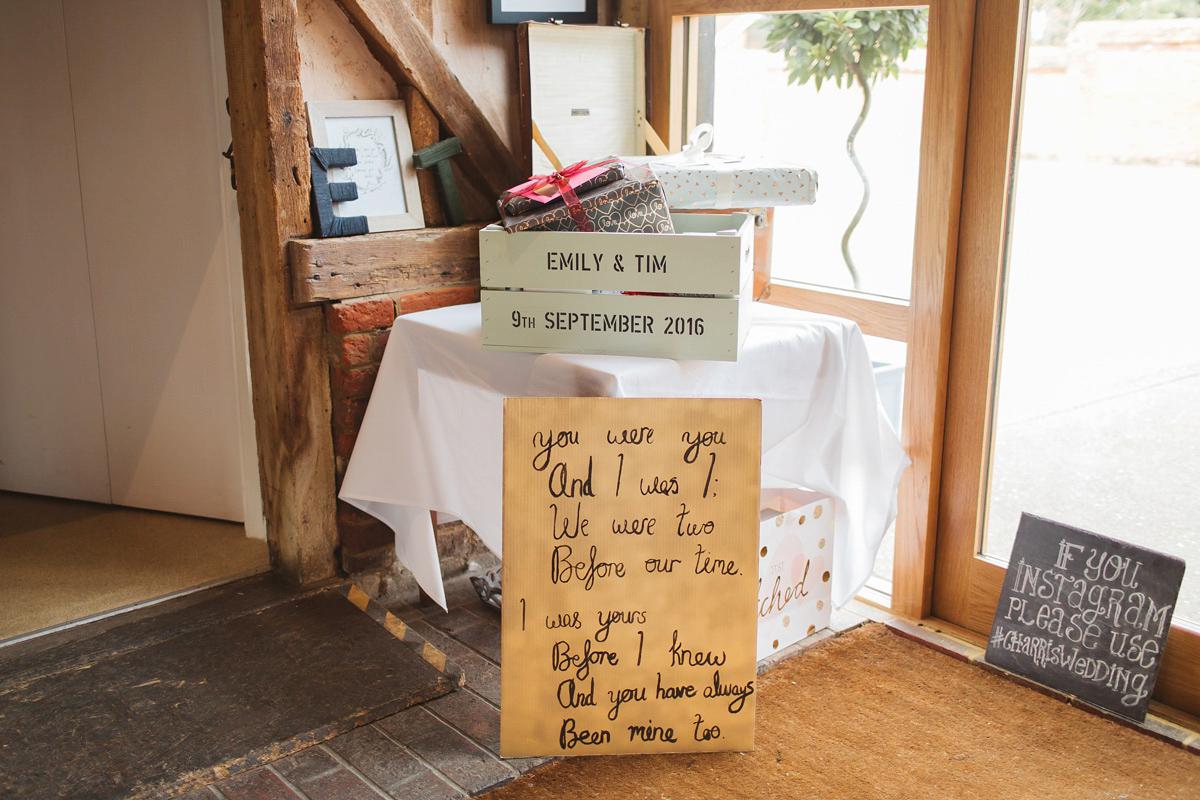 E
T
EMILY & TIM
9TH SEPTEMBER 2016
you were you
And I was I;
We were two
Before our time.
I was yours
Before I knew
And you have always
Been mine too.
IF YOU
INSTAGRAM
PLEASE USE
#CHARRISWEDDING